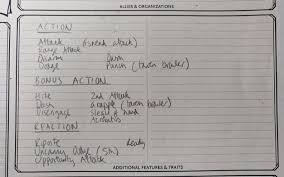 ALLIES & ORGANIZATIONS
ACTION
Attack (sneak attack)
Attack
Disarm Dash
Dodge Punch (tavern brawler)
BONUS ACTION
Hide 2nd Attack
Dash Grapple (tavern brawler)
Disengage Sleight of hand
Acrobatics
REACTION
Riposte Ready
Uncanny dodge (5th)
Opportunity Attack
ADDITIONAL FEATURES & TRAITS